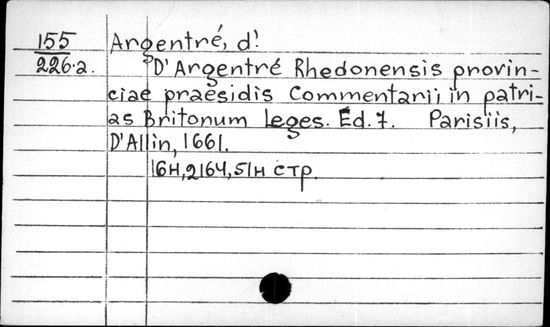 155 Argentré, d'.
226.a. D'Argentré Rhedonensis provin-
ciae praesidis Commentarii, in patri-
as Britonum Leges. Ed. 7. Parisiis,
D'Allin, 1661.
16н, 2164, 51н стр.